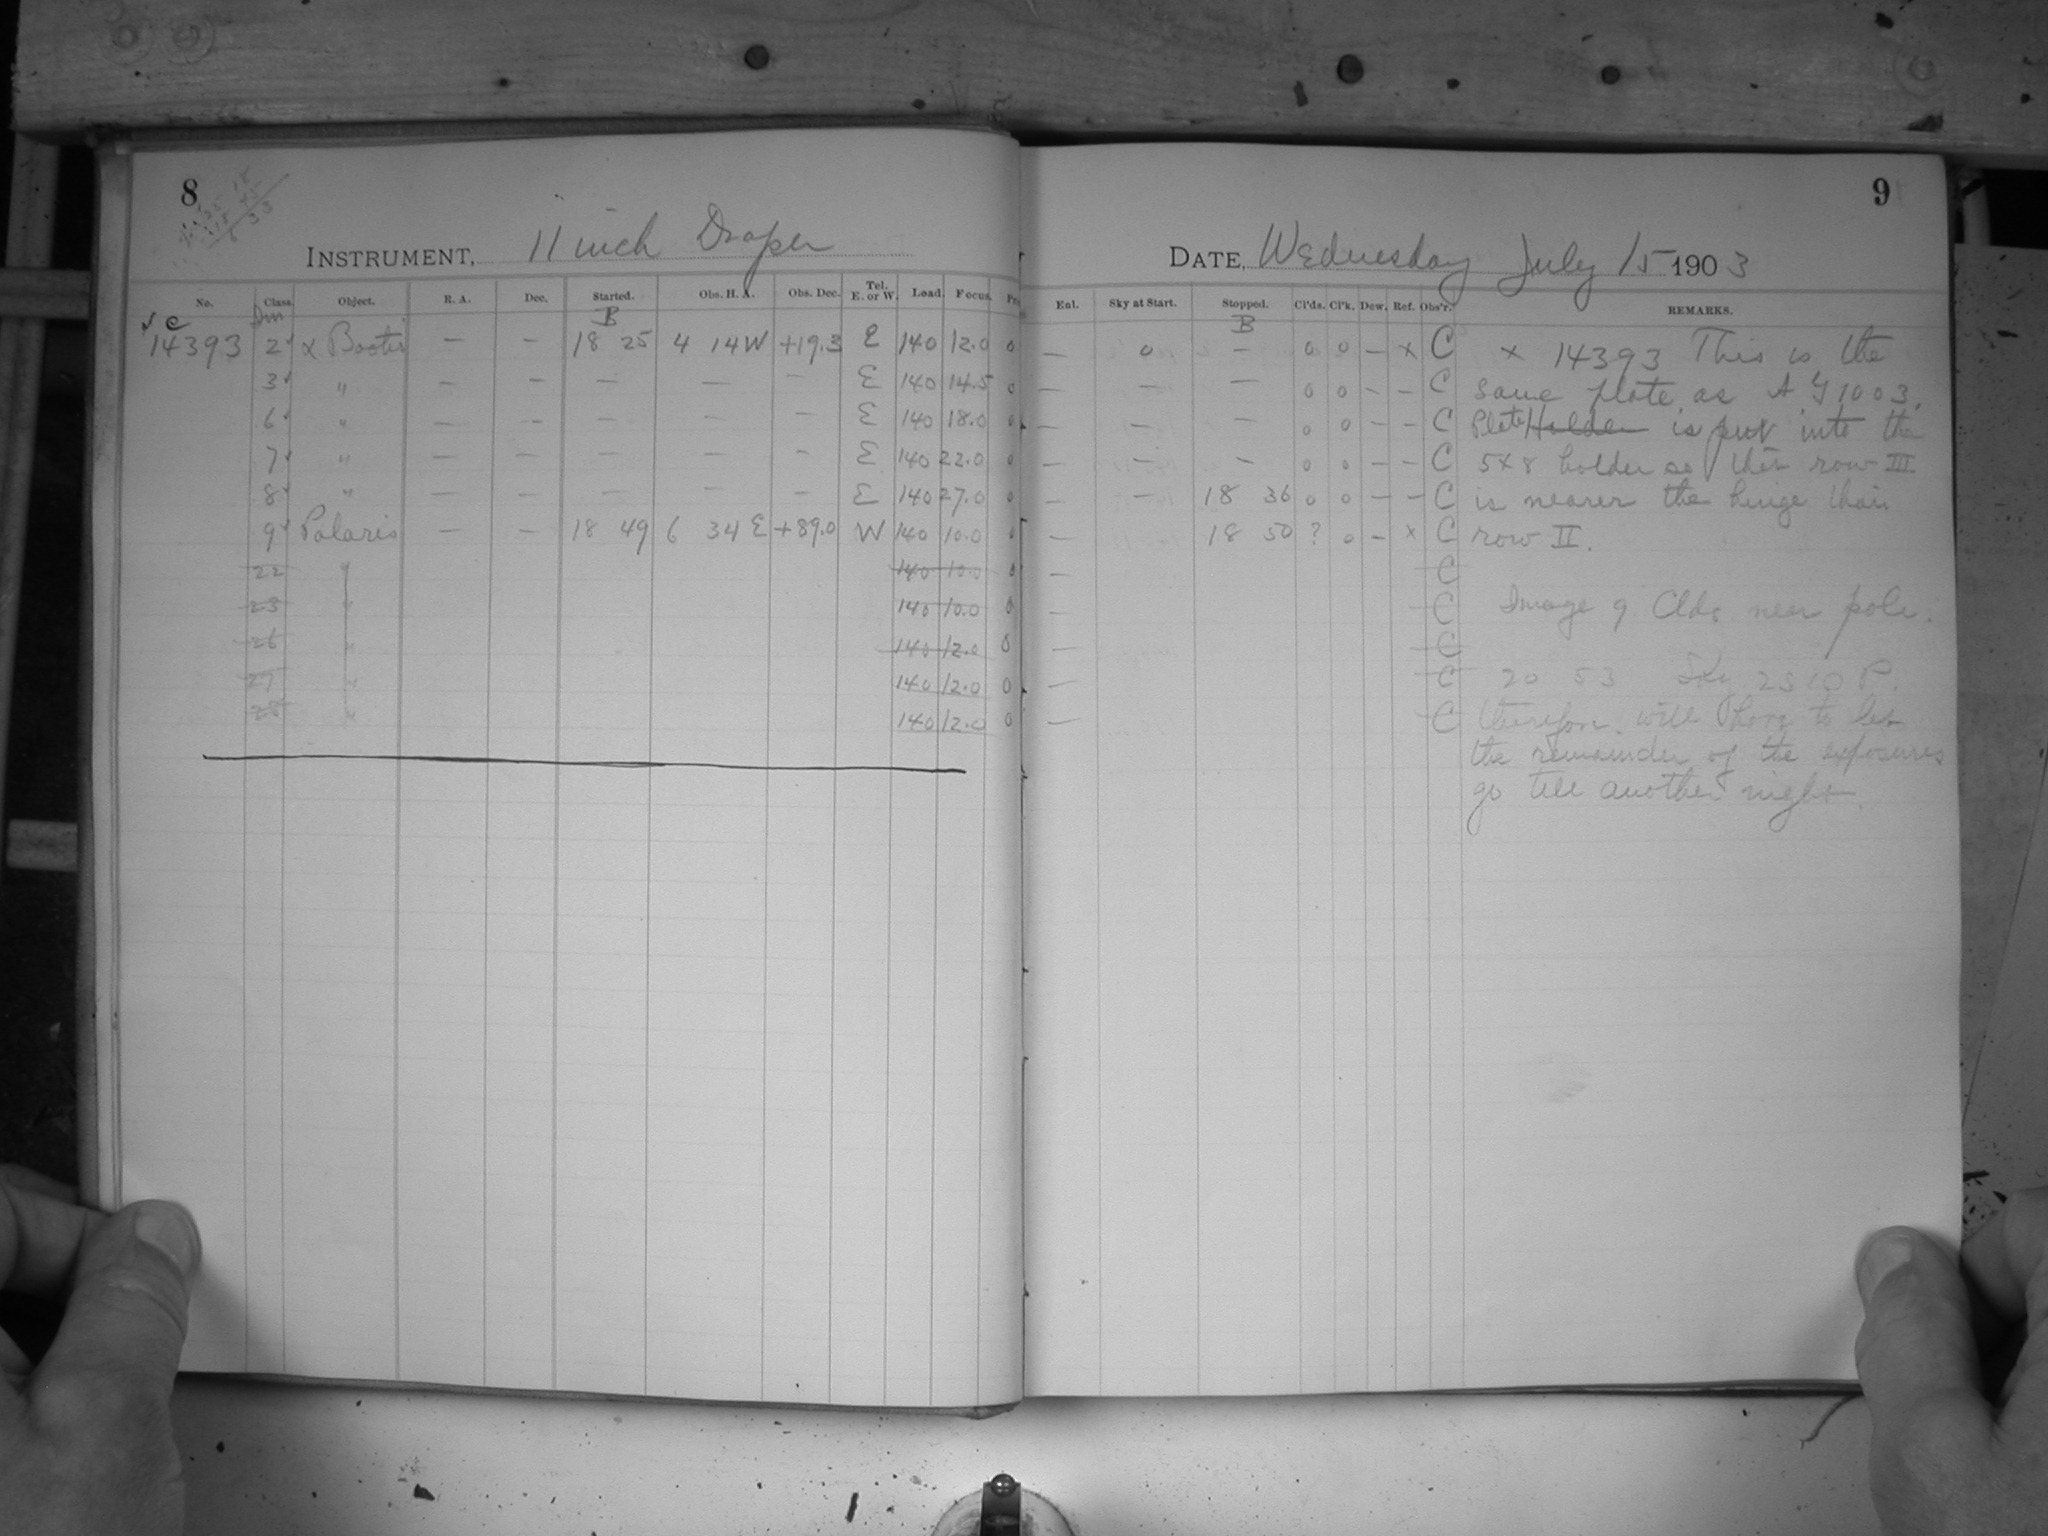 8
INSTRUMENT, 11 inch Draper
No. Class. Object. R. A. Dec. Started. Obs. H. A. Obs. Dec. Tel. E. or W. Load. Focus.
B
14393 2 α Bootis — — 18 25 4 14W +19.3 E 140 12.0 0
3 " — — — — — E 140 14.5 0
6 " — — — — — E 140 18.0 0
7 " — — — — — E 140 22.0 0
8 " — — — — — E 140 27.0 0
9 Polaris — — 18 49 6 34 E +89.0 W 140 10.0 0
22 " 140 10.0 0
23 " 140 10.0 0
26 " 140 12.0 0
27 " 140 12.0 0
28 " 140 12.0 0
9
DATE, Wednesday July 15 1903
Enl. Sky at Start. Stopped. Cl'ds. Cl'k. Dew. Ref. Obs'r. REMARKS.
B
— 0 — 0 0 — x C x 14393 This is the
— — — 0 0 — — C same plate as
— — — 0 0 — — C Plate Holder is put into the
— — — 0 0 — — C 5x8 holder so that row III
— — 18 36 0 0 — — C is nearer the hinge than
— 18 50 ? 0 — x C row II.
— C
— C Image 9 Clds near pole.
— C
— C 20 53 Sky
— C therefore will have to let
the remainder of the exposures
go till another night.